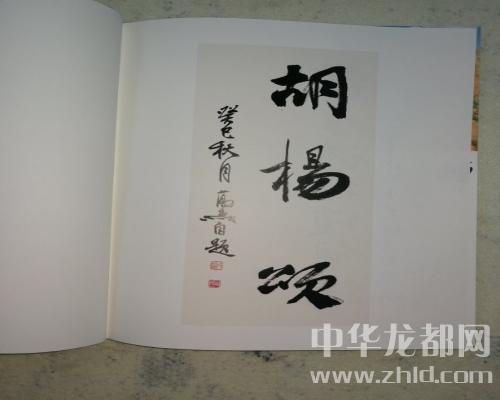 胡楊颂
癸巳秋月
自题
中华龙都网
www.zhld.com